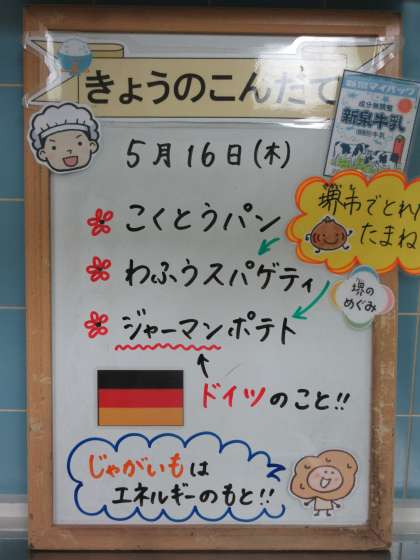 きょうのこんだて
5月16日(木)
新泉牛乳
こくとうパン
堺市でとれ
たまね
わふうスパゲティ
堺の
めぐみ
ジャーマンポテト
ドイツのこと!!
じゃがいもは
エネルギーのもと!!